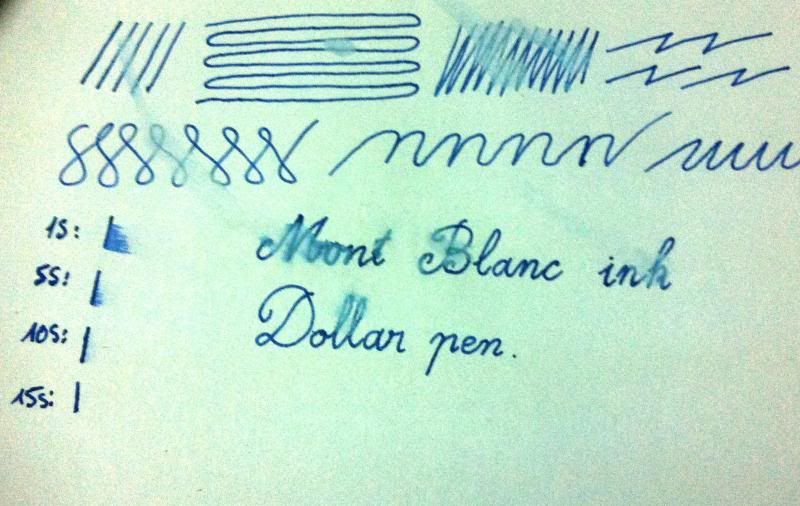 1s:
5s:
10s:
15s:
Mont Blanc ink
Dollar pen.